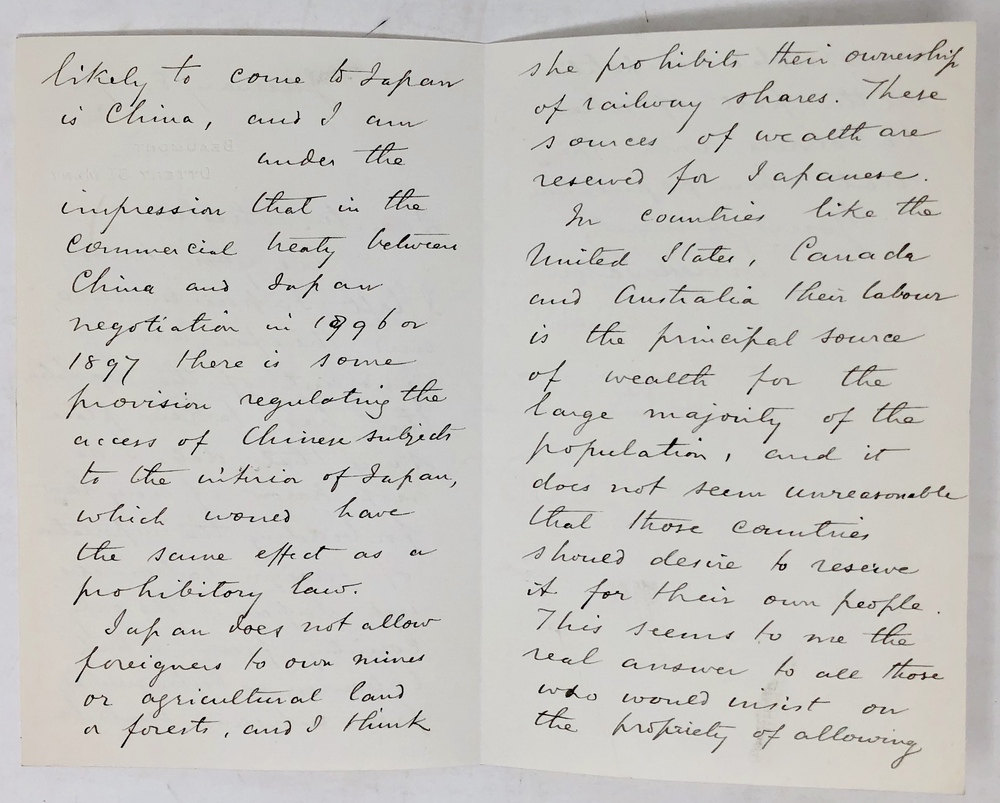 likely to come to Japan
is China, and I am
under the
impression that in the
commercial treaty between
China and Japan
negotiation in 1896 or
1897 there is some
provision regulating the
access of Chinese subjects
to the interior of Japan,
which would have
the same effect as a
prohibitory law.
Japan does not allow
foreigners to own mines
or agricultural land
or forests, and I think
she prohibits their ownership
of railway shares. These
sources of wealth are
reserved for Japanese.
In countries like the
United States, Canada
and Australia their labour
is the principal source
of wealth for the
large majority of the
population, and it
does not seem unreasonable
that those countries
should desire to reserve
it for their own people.
This seems to me the
real answer to all those
who would insist on
the propriety of allowing